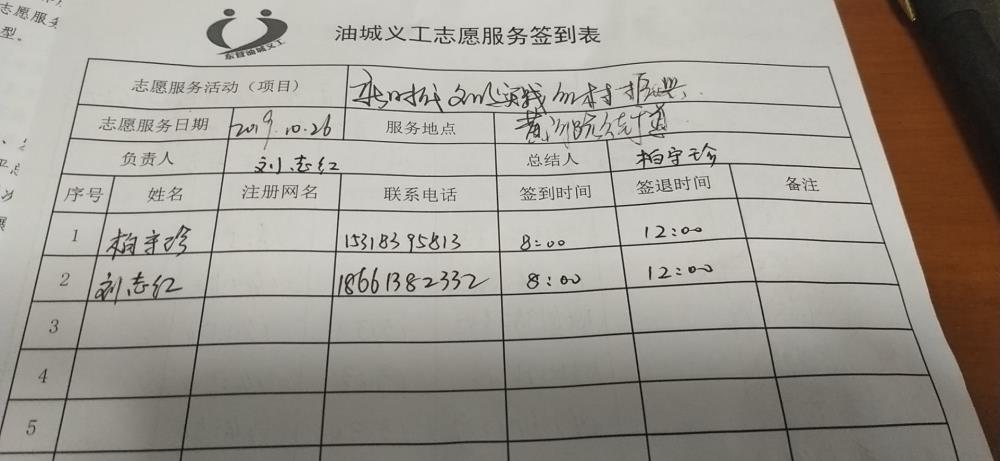 志愿服务
型。
东营油城义工
油城义工志愿服务签到表
志愿服务活动（项目） 新时代文明实践 乡村振兴
志愿服务日期 2019.10.26 服务地点
负责人 刘志红 总结人 柏守珍
序号 姓名 注册网名 联系电话 签到时间 签退时间 备注
1 柏守珍 15318395813 8:00 12:00
2 刘志红 18661382332 8:00 12:00
3
4
5